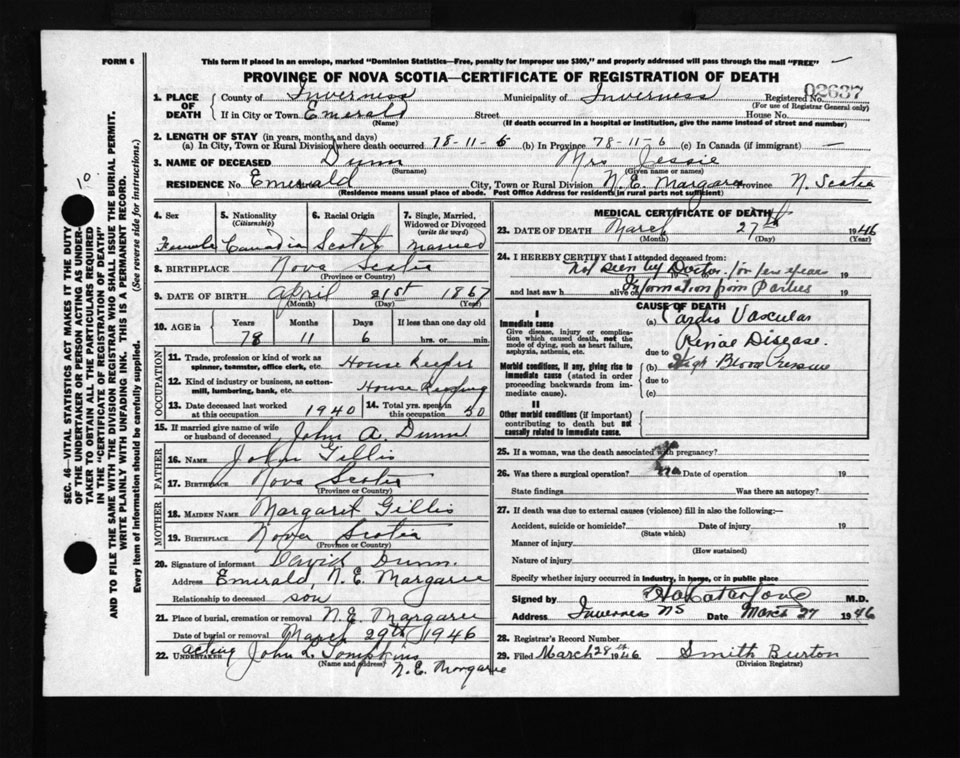 FORM 6
This form if placed in an envelope, marked "Dominion Statistics—Free, penalty for improper use $300," and properly addressed will pass through the mail "FREE"
PROVINCE OF NOVA SCOTIA—CERTIFICATE OF REGISTRATION OF DEATH
1. PLACE OF DEATH County of Inverness Municipality of Inverness Registered No. 02637
(For use of Registrar General only)
If in City or Town Emerald Street House No.
(Name) (If death occurred in a hospital or institution, give the name instead of street and number)
2. LENGTH OF STAY (in years, months, and days)
(a) In City, Town or Rural Division where death occurred 78-11-6 (b) In Province 78-11-6 (c) In Canada (if immigrant) —
3. NAME OF DECEASED Dunn Mrs Jessie
(Surname) (Given name or names)
RESIDENCE No. Emerald City, Town or Rural Division N.E. Margaree Province N. Scotia
(Residence means usual place of abode. Post Office Address for residents in rural parts not sufficient)
4. Sex Female
5. Nationality (Citizenship) Canadian
6. Racial Origin Scotch
7. Single, Married, Widowed or Divorced (write the word) Married
8. BIRTHPLACE Nova Scotia
(Province or Country)
9. DATE OF BIRTH April 21st 1867
(Month) (Day) (Year)
10. AGE in Years Months Days If less than one day old
78 11 6 hrs. or min.
OCCUPATION
11. Trade, profession or kind of work as spinner, teamster, office clerk, etc. House Keeper
12. Kind of industry or business, as cotton-mill, lumbering, bank, etc. House Keeping
13. Date deceased last worked at this occupation 1940 14. Total yrs. spent in this occupation 50
15. If married give name of wife or husband of deceased John A. Dunn
FATHER
16. NAME John Gillis
17. BIRTHPLACE Nova Scotia
(Province or Country)
MOTHER
18. MAIDEN NAME Margaret Gillis
19. BIRTHPLACE Nova Scotia
(Province or Country)
20. Signature of informant David Dunn
Address Emerald, N.E. Margaree
Relationship to deceased son
21. Place of burial, cremation or removal N.E. Margaree
Date of burial or removal March 29th 1946
22. UNDERTAKER acting John L. Tompkins
(Name and address) N.E. Margaree
MEDICAL CERTIFICATE OF DEATH
23. DATE OF DEATH March 27th 1946
(Month) (Day) (Year)
24. I HEREBY CERTIFY that I attended deceased from:
Not seen by Doctor for few years 19
and last saw h alive on Information from Parties 19
CAUSE OF DEATH
I
Immediate cause
Give disease, injury or complication which caused death, not the mode of dying, such as heart failure, asphyxia, asthenia, etc.
(a) Cardio Vascular
Renal Disease.
due to
Morbid conditions, if any, giving rise to immediate cause (stated in order proceeding backwards from immediate cause).
(b) High Blood Pressure
due to
(c)
II
Other morbid conditions (if important) contributing to death but not causally related to immediate cause.
25. If a woman, was the death associated with pregnancy? no
26. Was there a surgical operation? no Date of operation 19
State findings Was there an autopsy?
27. If death was due to external causes (violence) fill in also the following:—
Accident, suicide or homicide? Date of injury 19
(State which)
Manner of injury
(How sustained)
Nature of injury
Specify whether injury occurred in industry, in home, or in public place
Signed by M.D.
Address Inverness NS Date March 27 1946
28. Registrar's Record Number
29. Filed March 28th 1946 Smith Burton
(Division Registrar)
SEC. 46—VITAL STATISTICS ACT MAKES IT THE DUTY OF THE UNDERTAKER OR PERSON ACTING AS UNDERTAKER TO OBTAIN ALL THE PARTICULARS REQUIRED IN THE "CERTIFICATE OF REGISTRATION OF DEATH" AND TO FILE THE SAME WITH THE DIVISION REGISTRAR WHO SHALL ISSUE THE BURIAL PERMIT.
WRITE PLAINLY WITH UNFADING INK. THIS IS A PERMANENT RECORD.
Every item of information should be carefully supplied. (See reverse side for instructions.)
10